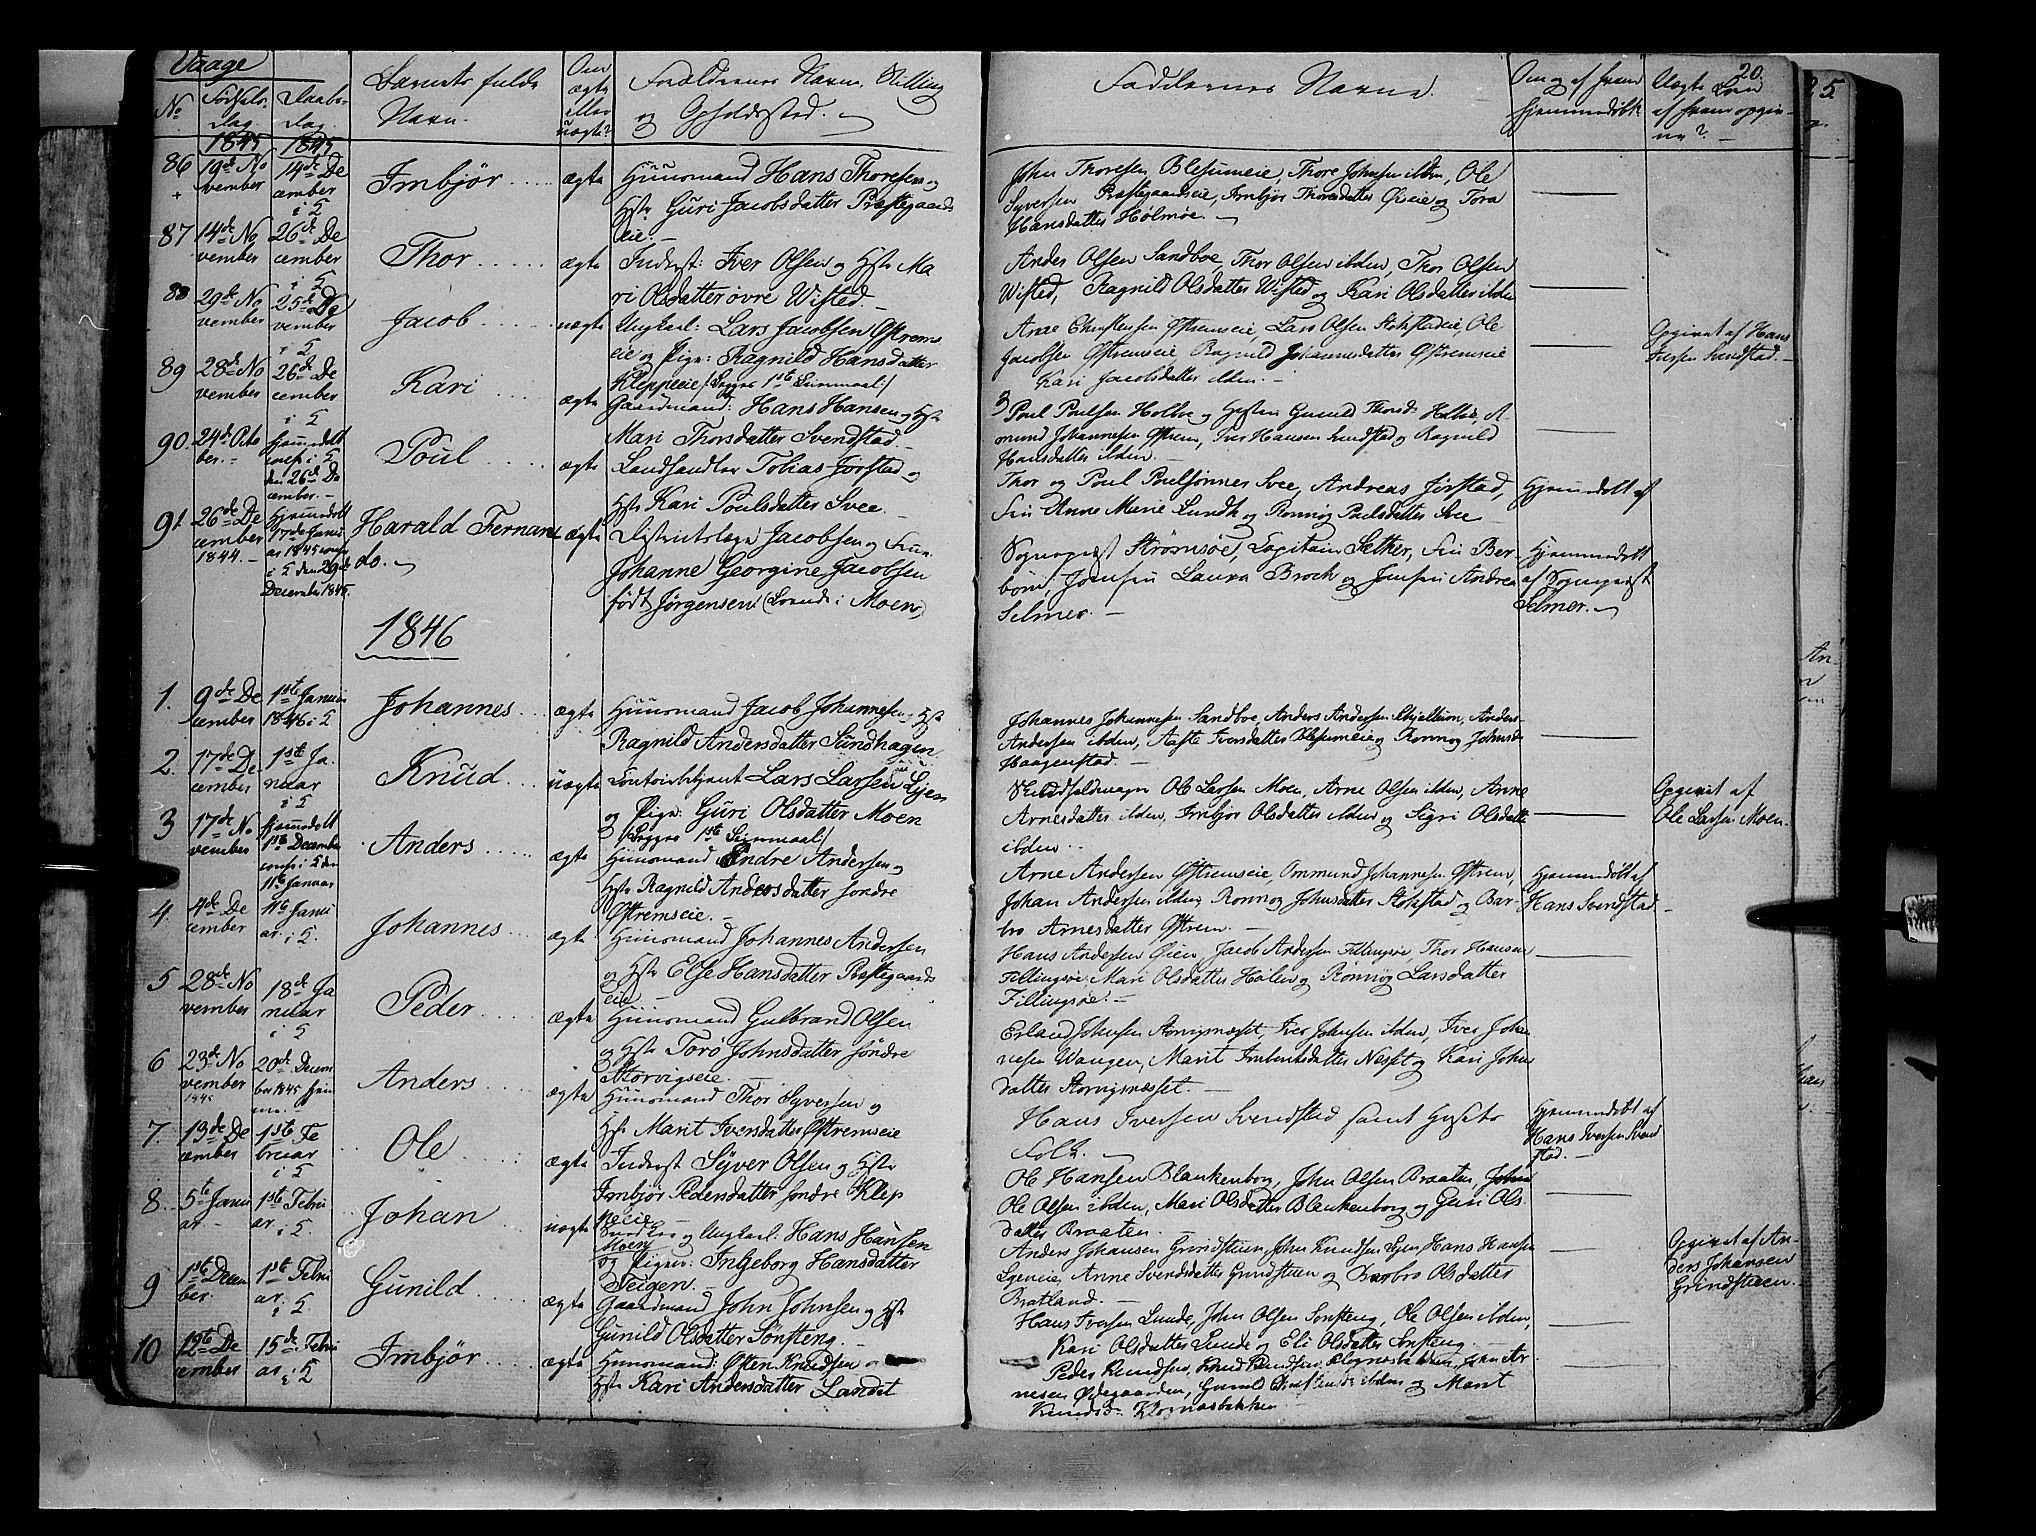 Vaage
No
Fødsels-
dag.
Daabs-
dag.
Barnets fulde
Navn.
Om
ægte
eller
uægte?
Forældrenes Navn, Stilling
og Opholdssted.
Faddernes Navne.
Om og af hvem
hjemmedøbt
Uægte Børn
af hvem opgiv-
ne?
20.
25
1845 1845
86 19de No
vember
14de De
cember
i K
Imbjør ægte
Huusmand Hans Thoresen og
Hstr Guri Jacobsdatter Præstegaards
eie.
John Thoresen Blesumeie, Thore Johnsen ibden, Ole
Syversen Præstegaardseie, Imbjør Thoresdatter Øieeie og Tora
Hansdatter Holmøe.
87 14de No
vember
26de De
cember
Thor ægte
Inderst: Iver Olsen og Hstr Ma
ri Olsdatter øvre Wisted.
Anders Olsen Sandboe, Thor Olsen ibden, Thor Olsen
Wisted, Ragnild Olsdatter Wisted og Kari Olsdatter ibden
88 29de No
vember
25de De
vember
Jacob uægte
Ungkarl: Lars Jacobsen Østrems
eie og Pige: Ragnild Hansdatter
Kleppeeie /Begges 1ste Leiermaal/
Arne Christensen Østremseie, Lars Olsen Stokstadeie, Ole
Jacobsen Østremseie, Ragnild Johannesdatter Østremseie
Kari Jacobsdatter ibden.
Opgivet af Hans
Iversen Svendstad.
89 28de No
vember
26de De
cember
Kari ægte
Gaardmand: Hans Hansen og Hstr
Mari Thorsdatter Svendstad.
Poul Poulsen Holboe og Hustru Gunild Thorsd: Holboe, A-
mund Johannesen Østrem, Iver Hansen Svendstad og Ragnild
Hansdatter ibden.
90. 24de Octo
ber.
Hjemmedøbt
conf. i K
den 26de De
cember.
Poul ægte
Landhandler Tobias Jørstad og
Hstr Kari Poulsdatter Svee.
Thor og Poul Poulsønner Svee, Andreas Jørstad,
Fru Anne Marie Lundh og Rønnog Poulsdatter Svee
Hjemmedøbt af
91. 26de De
cember
1844.
Hjemmedøbt
17de Janu
ar 1845 conf.
i K den 29de
December 1845.
Harald Fernan
do. ægte
Districtslæge Jacobsen og Frue
Johanne Georgine Jacobsen
født Jørgensen (Boende i Moen)
Sognepræst Strømsøe, Capitain Sether, Fru Ber-
bom, Jomfru Laura Broch og Jomfru Andrea
Selmer.
Hjemmedøbt
af Sognepræst
Selmer.
1846
1. 9de De
cember
1ste Janu
1846 i K
Johannes ægte
Huusmand Jacob Johannesen Hstr
Ragnild Andersdatter Sundhagen
Johannes Johannesen Sandboe, Anders Andersen Skjellum, Anders
Andersen ibden, Aaste Iversdatter Blesumeie og Rønnog Johnsd:
Haagenstad.
2. 17de De
cember
1ste Ja
nuar
i K
Knud uægte
Contoirbetjent Lars Larsen Lyen
og Pige: Guri Olsdatter Moen
/Begges 1ste Leiermaal/
Ole Larsen Moen, Arne Olsen ibden, Anne
Arnesdatter ibden, Imbjør Olsdatter ibden og Sigri Olsdatter
ibden.
Opgivet af
Ole Larsen Moen.
3 17de No
vember
Hjemmedøbt
1ste December
conf. i K den
11te Januar
Anders ægte
Huusmand Endre Andersen og
Hstr Ragnild Andersdatter søndre
Østremseie.
Arne Andersen Østremseie, Ommund Johannesen Østrem,
Johan Andersen ibden, Rønnog Johnsdatter Stokstad og Bar-
bro Arnesdatter Østrem.
Hjemmedøbt af
Hans Svendstad
4. 4de De
cember
11te Janu
ar. i K.
Johannes ægte
Huusmand Johannes Andersen
og Hstr Else Hansdatter Præstegaards
eie
Hans Andersen Øien, Jacob Andersen Fillingsøe, Thor Hansen
Fillingsøe, Mari Olsdatter Holen og Rønnog Larsdatter
Fillingsøe.
5 28de No
vember
18de Ja
nuar
i K
Peder ægte
Huusmand Gulbrand Olsen
og Hstr Torø Johnsdatter søndre
Storvigseie.
Erland Johnsen Storvignæsset, Iver Johnsen ibden, Iver Johan
nesen Wangen, Marit Imbertsdatter Nesset og Kari Johns
datter Storvignæsset.
6 23de No
vember
1845
20de Decem
ber 1845 hjem
me.
Anders ægte
Huusmand Thor Syversen og
Hstr Marit Iversdatter Østremseie
Hans Iversen Svendstad samt Husets
Folk.
Hjemmedøbt af
Hans Iversen Svend
stad.
7. 13de De
cember
1ste Fe
bruar
i K
Ole ægte
Inderst Syver Olsen og Hstr
Imbjør Pedersdatter søndre Klep
peeie
Ole Hansen Blankenborg, John Olsen Braaten, John
Ole Olsen ibden, Mari Olsdatter Blankenborg og Guri Ols
datter Braaten.
8. 5te Janu
ar.
1ste Febru
ar. i K.
Johan uægte
og Ungkarl: Hans Hansen
Moen
og Pigen: Ingeborg Hansdatter
Teigen.
Anders Johansen Grindstuen, John Knudsen Lyen, Hans Hansen
Lyeneie, Anne Svendsdatter Grindstuen og Barbro Olsdatter
Bratland.
Opgivet af An-
ders Johansen
Grindstuen.
9 1ste Decem
ber.
1ste Febru
ar. i K
Gunild ægte
Gaardmand John Johnsen og Hstr
Gunild Olsdatter Sønsteng.
Hans Iversen Lunde, John Olsen Sønsteng, Ole Olsen ibden,
Kari Olsdatter Lunde og Eli Olsdatter Sønsteng.
10 12te De
cember
15de Febru
ar, i K
Imbjør ægte
Huusmand: Østen Knudsen og
Hstr Kari Andersdatter Landet
Peder Knudsen, Knud Knudsen Klognæsbakken, Ar
nesen Ødegaarden, Gunild ibden og Marit
Knudsd: Klognæsbakken